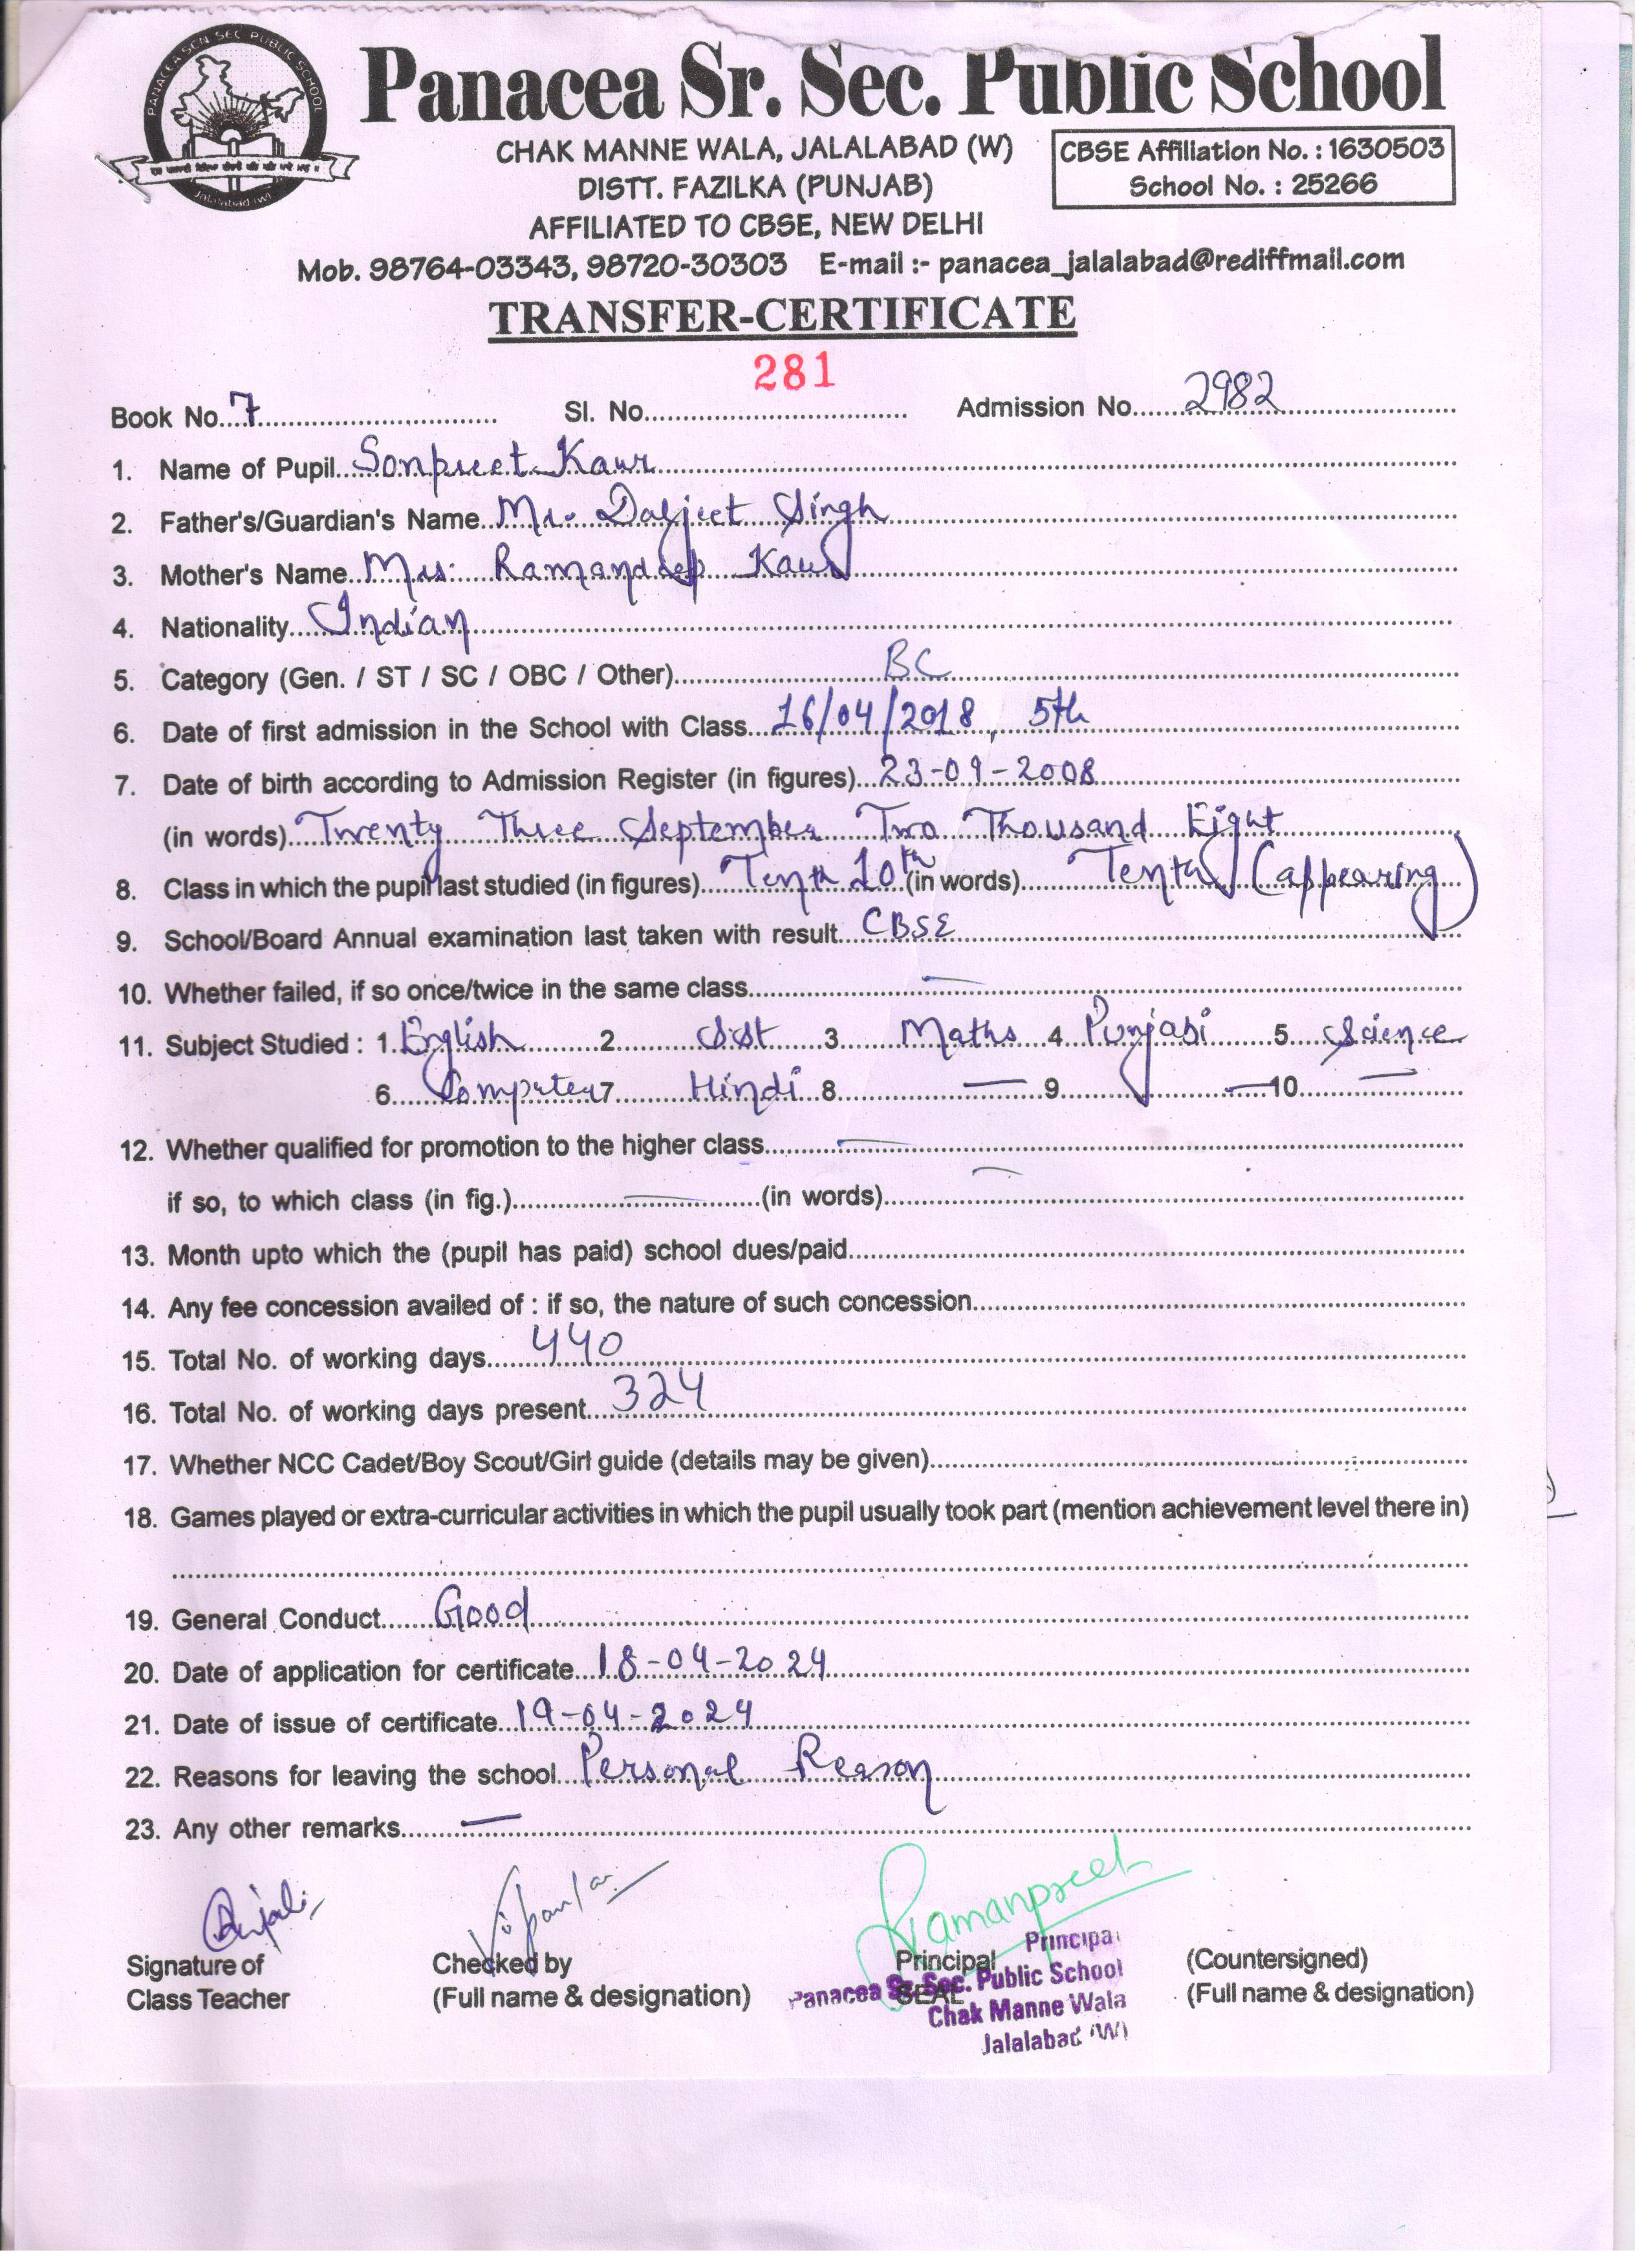 PANACEA SCN SEC PUBLIC SCHOOL
Jalalabad (W)
Panacea Sr. Sec. Public School
CHAK MANNE WALA, JALALABAD (W)
CBSE Affiliation No. : 1630503
DISTT. FAZILKA (PUNJAB)
School No. : 25266
AFFILIATED TO CBSE, NEW DELHI
Mob. 98764-03343, 98720-30303 E-mail :- panacea_jalalabad@rediffmail.com
TRANSFER-CERTIFICATE
281
Book No. 7 Sl. No. Admission No. 2982
1. Name of Pupil Sonpreet Kaur
2. Father's/Guardian's Name Mr. Daljeet Singh
3. Mother's Name Mrs. Ramandeep Kaur
4. Nationality Indian
5. Category (Gen. / ST / SC / OBC / Other) BC
6. Date of first admission in the School with Class 16/04/2018, 5th
7. Date of birth according to Admission Register (in figures) 23-09-2008
(in words) Twenty Three September Two Thousand Eight
8. Class in which the pupil last studied (in figures) Tenth 10th (in words) Tenth (appearing)
9. School/Board Annual examination last taken with result CBSE
10. Whether failed, if so once/twice in the same class —
11. Subject Studied : 1. English 2 S.st 3 Maths 4 Punjabi 5 Science
6 Computer 7 Hindi 8 — 9 — 10 —
12. Whether qualified for promotion to the higher class —
if so, to which class (in fig.) — (in words) —
13. Month upto which the (pupil has paid) school dues/paid
14. Any fee concession availed of : if so, the nature of such concession
15. Total No. of working days 440
16. Total No. of working days present 324
17. Whether NCC Cadet/Boy Scout/Girl guide (details may be given)
18. Games played or extra-curricular activities in which the pupil usually took part (mention achievement level there in)
19. General Conduct Good
20. Date of application for certificate 18-04-2024
21. Date of issue of certificate 19-04-2024
22. Reasons for leaving the school Personal Reason
23. Any other remarks —
Anjali Ramanpreet
Signature of Checked by Principal (Countersigned)
Class Teacher (Full name & designation) SEAL (Full name & designation)
Principal
Panacea Sr. Sec. Public School
Chak Manne Wala
Jalalabad (W)